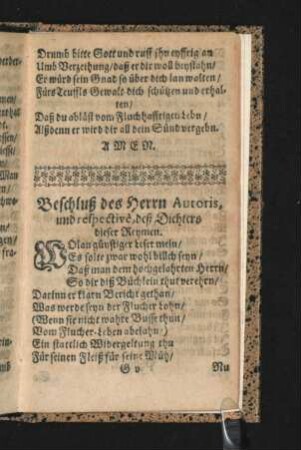 Drumb bitte Gott und ruff ihn eyffrig an
Umb Verzeihung/ daß er dir woll beystahn/
Er würd sein Gnad so über dich lan walten/
Fürs Teuffls Gewalt dich schützen und erhal-
ten/
Daß du abläst vom Fluchhafftigen Lebn/
Alßdenn er wird dir all dein Sünd vergebn.
A M E N.
Beschluß des Herrn Autoris,
und respectivè, deß Dichters
dieser Reymen.
WOlan günstiger Leser mein/
Es solte zwar wohl billich seyn/
Daß man dem hochgelahrten Herrn/
So dir diß Büchlein thut verehrn/
Darinn er klarn Bericht gethan/
Was werde seyn der Flucher Lohn/
(Wenn sie nicht wahre Busse thun/
Vom Flucher-Leben abstahn)
Ein stattlich Widergeltung thu
Für seinen Fleiß für seine Müh/
G v
Nu